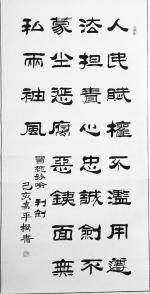 人民賦權不濫用遵
法担責心忠誠劍不
蒙尘惩腐惡銕面無
私兩袖風
利劍
己亥
書